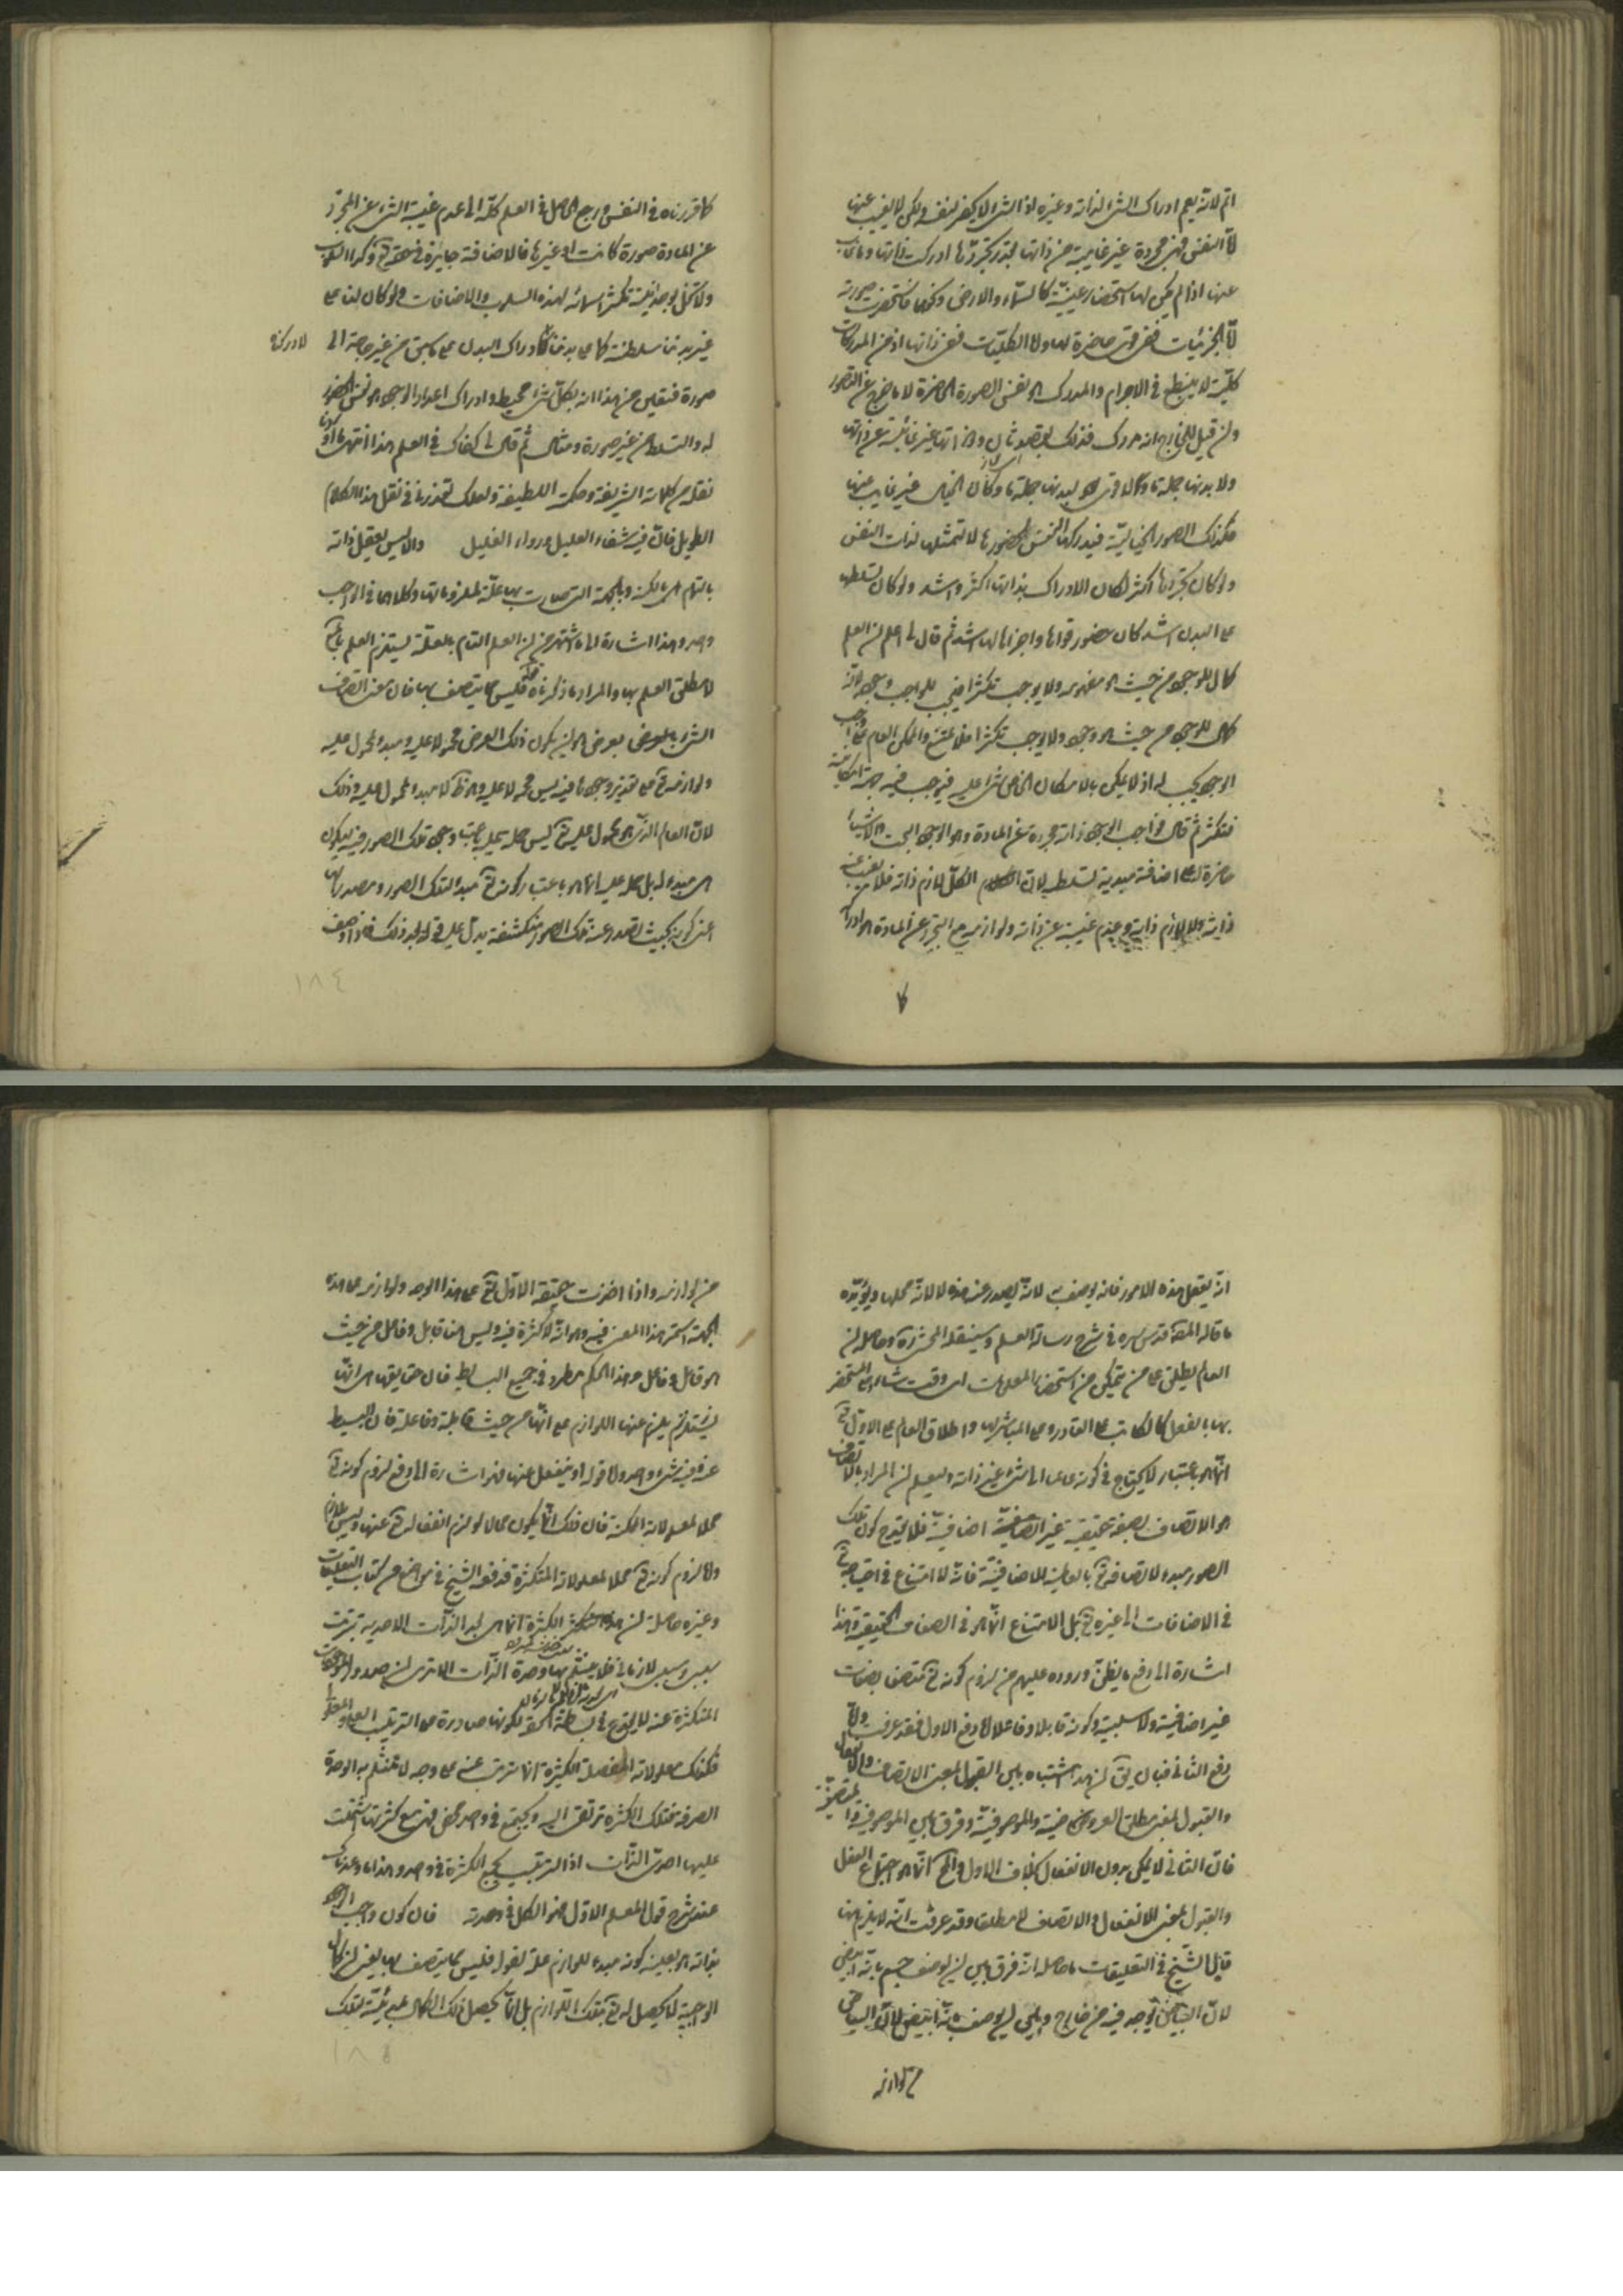 اتم لانه يعم ادراك الشئ لذاته وغيره اذ الشئ لا يحضر لنفسه ولكن لا يغيب عنها
لان النفس فهى مجردة غير غايبة عن ذاتها فبقدر تجردها ادركت ذاتها وما غاب
عنها اذا لم يكن لها استحضار عينيّة كالسماء والارض ونحوهما فاستحضرت صورته
امّا الجزئيات ففى قوى حاضرة لها واما الكليّات ففى ذاتها اذ من المدركات
كليّة لا ينطبع فى الاجرام والمدرك هو نفس الصورة الحاضرة لا ما خرج عن التصور
وان قيل للخارج انه مدرك فذلك بقصد ثان وذاتها غير غائبة عن ذاتها
ولا بدنها جملة ما ولا قوى لبدنها جملة ما وكما ان الخيال غير غايب عنها
فكذلك الصور الخياليّة فيدركها النفس لحضورها لا لتمثلها لذات النفس
ولو كان تجردها اكثر لكان الادراك بذاتها اكثر واشد ولو كان تسلطها
على البدن اشد كان حضور قواها واجزائها لها اشد ثم قال لى اعلم ان العلم
كمال للوجود من حيث هو مفهومه ولا يوجب تكثرا فيجب للواجب وجوده لانه
كمال للوجود من حيث هو وجود ولا يوجب تكثرا فلا يمتنع والممكن العام على واجب
الوجود يجب له اذ لا يمكن بالامكان الخاص شئ عليه فيوجب فيه جهة امكانية
فتكثر ثم قال فواجب الوجود ذاته مجردة عن المادة وهو الوجود البحت والاشياء
حاضرة له على اضافة مبدئية تسلطية لان الكل لازم ذاته فلا يغيب عنه
ذاته ولا لازم ذاته وعدم غيبته عن ذاته ولوازمه مع التجرد عن المادة هو ادراكه
كما قررناه فى النفس ورجع الحاصل فى العلم كله الى عدم غيبة الشئ عن المجرد
عن المادة صورة كانت او غيرها فالاضافة جايزة فى حقه تع وكذا السلوب
ولا تخل بوحدانيته تكثر اسمائه لهذه السلوب والاضافات ولو كان لنا على
غير بدننا سلطنة كما على بدننا لادركناه كادراك البدن على ما سبق من غير حاجة الى
صورة فتعين من هذا انه بكل شئ محيط وادراك اعداد الوجود هو نفس الحضور
له والتسلط من غير صورة ومثال ثم قال لى كفاك فى العلم هذا انتهى ما اردنا
نقله من كلماته الشريفة وحكمته اللطيفة ولعلك تعذرنا فى نقل هذا الكلام
الطويل فان فيه شفاء العليل ورواء الغليل واذ ليس يعقل ذاته
بالتمام اى بالكنه وبالجهة التى صارت بها علة لمعلوماتها وكلاهما فى الواجب
واحد وهذا اشارة الى ما اشتهر من ان العلم التام بالعلة يستلزم العلم التام
لا مطلق العلم بها والمراد ما ذكرناه فليس مما يتصف بها فان معنى اتصاف
الشئ بالعرض بعرض هو ان يكون ذلك العرض محمولا عليه ومبدء لمحمول عليه
ولوازمه تع على تقدير وجودها فيه ليس محمولا عليه وهو ظ ولا مبدء المحمول عليه وذلك
لان العالم الذى هو محمول عليه تع ليس حمله عليه باعتبار وجود تلك الصور فيه ليكون
هى مبدء له بل حمله عليه انما هو باعتبار كونه تع مبدء لتلك الصور ومصدر لها
اعنى كونه بحيث تصدر عنه تلك الصور منكشفة يدل عليه قوله بعد ذلك فاذا وصف
انه يعقل هذه الامور فانه يوصف به لانه يصدر عنه هذه لا لانه محلها ويؤيده
ما قاله المصنف قدس سره فى شرح رسالة العلم وسينقله المحشى وحاصله ان
العالم يطلق على من يتمكن من استحضار المعلومات اى وقت شاء وعلى المستحضر
بها بالفعل كالكاتب على القادر وعلى المباشر لها واطلاق العالم على الاول تع
انما هو باعتبار لا يحتاج فى كونه عالما الى شئ غير ذاته وليعلم ان المراد بالاتصاف
هو الاتصاف بصفة حقيقية غير اضافية فلا يقدح كون تلك
الصور مبدء لاتصافه تع بالعالمية الاضافية فانه لا امتناع فى احتياجه تع
فى الاضافات الى غيره تع بل الامتناع انما هو فى الصفات الحقيقية وهذا
اشارة الى دفع ما يظن وروده عليهم من لزوم كونه تع متصفا بصفات
غير اضافية ولا سلبية وكونه قابلا وفاعلا اما دفع الاول فقد عرفت واما
دفع الثانى فبان يق ان هذا اشتباه بين القبول بمعنى الاتصاف والانفعال
والقبول بمعنى مطلق المعروضية والموصوفية وفرق بين الموصوفية
فان الثانى لا يمكن بدون الانفعال بخلاف الاول والمح انما هو اجتماع الفعل
والقبول بمعنى الانفعال والاتصاف لا مطلقا وقد عرفت انه لا يلزم هنا
قال الشيخ فى التعليقات ما حاصله انه فرق بين ان يوصف جسم بانه ابيض
لان البياض يوجد فيه من خارج وبين ان يوصف بانه ابيض لان البياض
من لوازمه
من لوازمه واذا اخذت حقيقة الاول تع على هذا الوجه ولوازمه على هذه
الجهة استمر هذا المعنى فيه وهو انه لا كثرة فيه وليس هنا قابل وفاعل من حيث
هو قابل وفاعل وهذا الحكم مطرد فى جميع البسايط فان حقايقها هى انها
يلزم عنها اللوازم على انها من حيث قابلة وفاعلة فان البسيط
عنه وفيه شئ واحد ولا قوله او ينفعل عنها فيه اشارة الى دفع لزوم كونه تع
محلا لمعلولاته الممكنة فان ذلك انما يكون محالا لو لزم انفعاله تع عنها وليس بلازم
واما لزوم كونه تع محلا لمعلولاته المتكثرة فدفعه الشيخ فى مواضع من كتاب التعليقات
وغيره حاصله ان هذه الكثرة انما هى بعد الذات الاحدية بترتيب
سببى ومسببى لا زمانى فلا ينثلم بها وحدة الذات الا ترى ان صدور الموجودات
المتكثرة عنه لا يقدح فى بساطته الحقة لكونها صادرة على الترتيب العلى والمعلولى
فكذلك معلولاته المفصلة الكثيرة انما تترتب عنه على وجه لا ينثلم به الوحدة
الصرفة فتلك الكثرة ترتقى اليه وتجتمع فى واحد محض فهى مع كثرتها اشتملت
عليها احدية الذات اذ الترتيب يجمع الكثرة فى واحد وهذا ما وعدناك
عند شرح قول المعلم الاول فهو الكل فى وحدته فان كون واجب الوجود
بذاته هو بعينه كونه مبدء للوازمه علة لقوله فليس مما يتصف بها يعنى ان كمال
الواجبية لا يحصل له تع بتلك اللوازم بل انما يحصل ذلك الكمال بمبدئيته لتلك